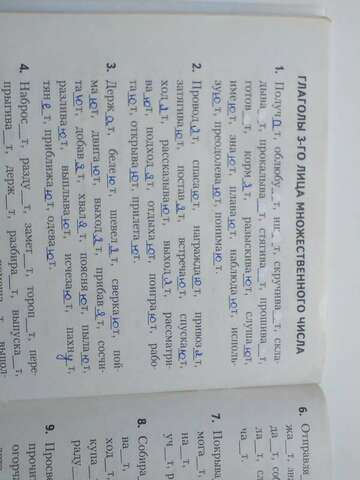 ГЛАГОЛЫ 3-ГО ЛИЦА МНОЖЕСТВЕННОГО ЧИСЛА
1. Получат, облюбу_т, ищ_т, скручива_т, скла-
дыва_т, прокалыва_т, стягива_т, прошива_т,
готов_т, кормят, разыскивают, слушают,
имеют, знают, плавают, наблюдают, исполь-
зуют, преодолевают, понимают.
2. Проводят, спасают, награждают, привозят,
затягивают, поставят, встречают, спускают,
ходят, рассказывают, выходят, рассматри-
вают, подходят, отдыхают, поиграют, рабо-
тают, открывают, прилетают.
3. Держат, белеют, шевелят, сверкают, пой-
мают, двигают, выходят, прибавят, сосчи-
тают, добавят, хвалят, пояснят, пылают,
разливают, выплывают, исчезают, пахнут,
тянет, приближают, одевают.
4. Наброс_т, разду_т, замет_т, тороп_т, пере-
прыгива_т, держ_т, разбира_т, выпуска_т,
6. Отправля
жа_т, зна
7. Покрыва
мога_т,
на_т,
8. Собира
ва_т,
ход_т,
купа
раду
9. Просве
прочи
огорч